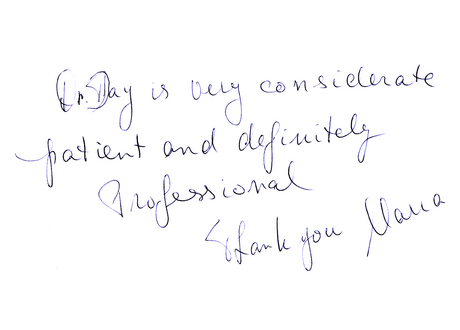 Dr. Day is very considerate
patient and definitely
Professional
Thank you